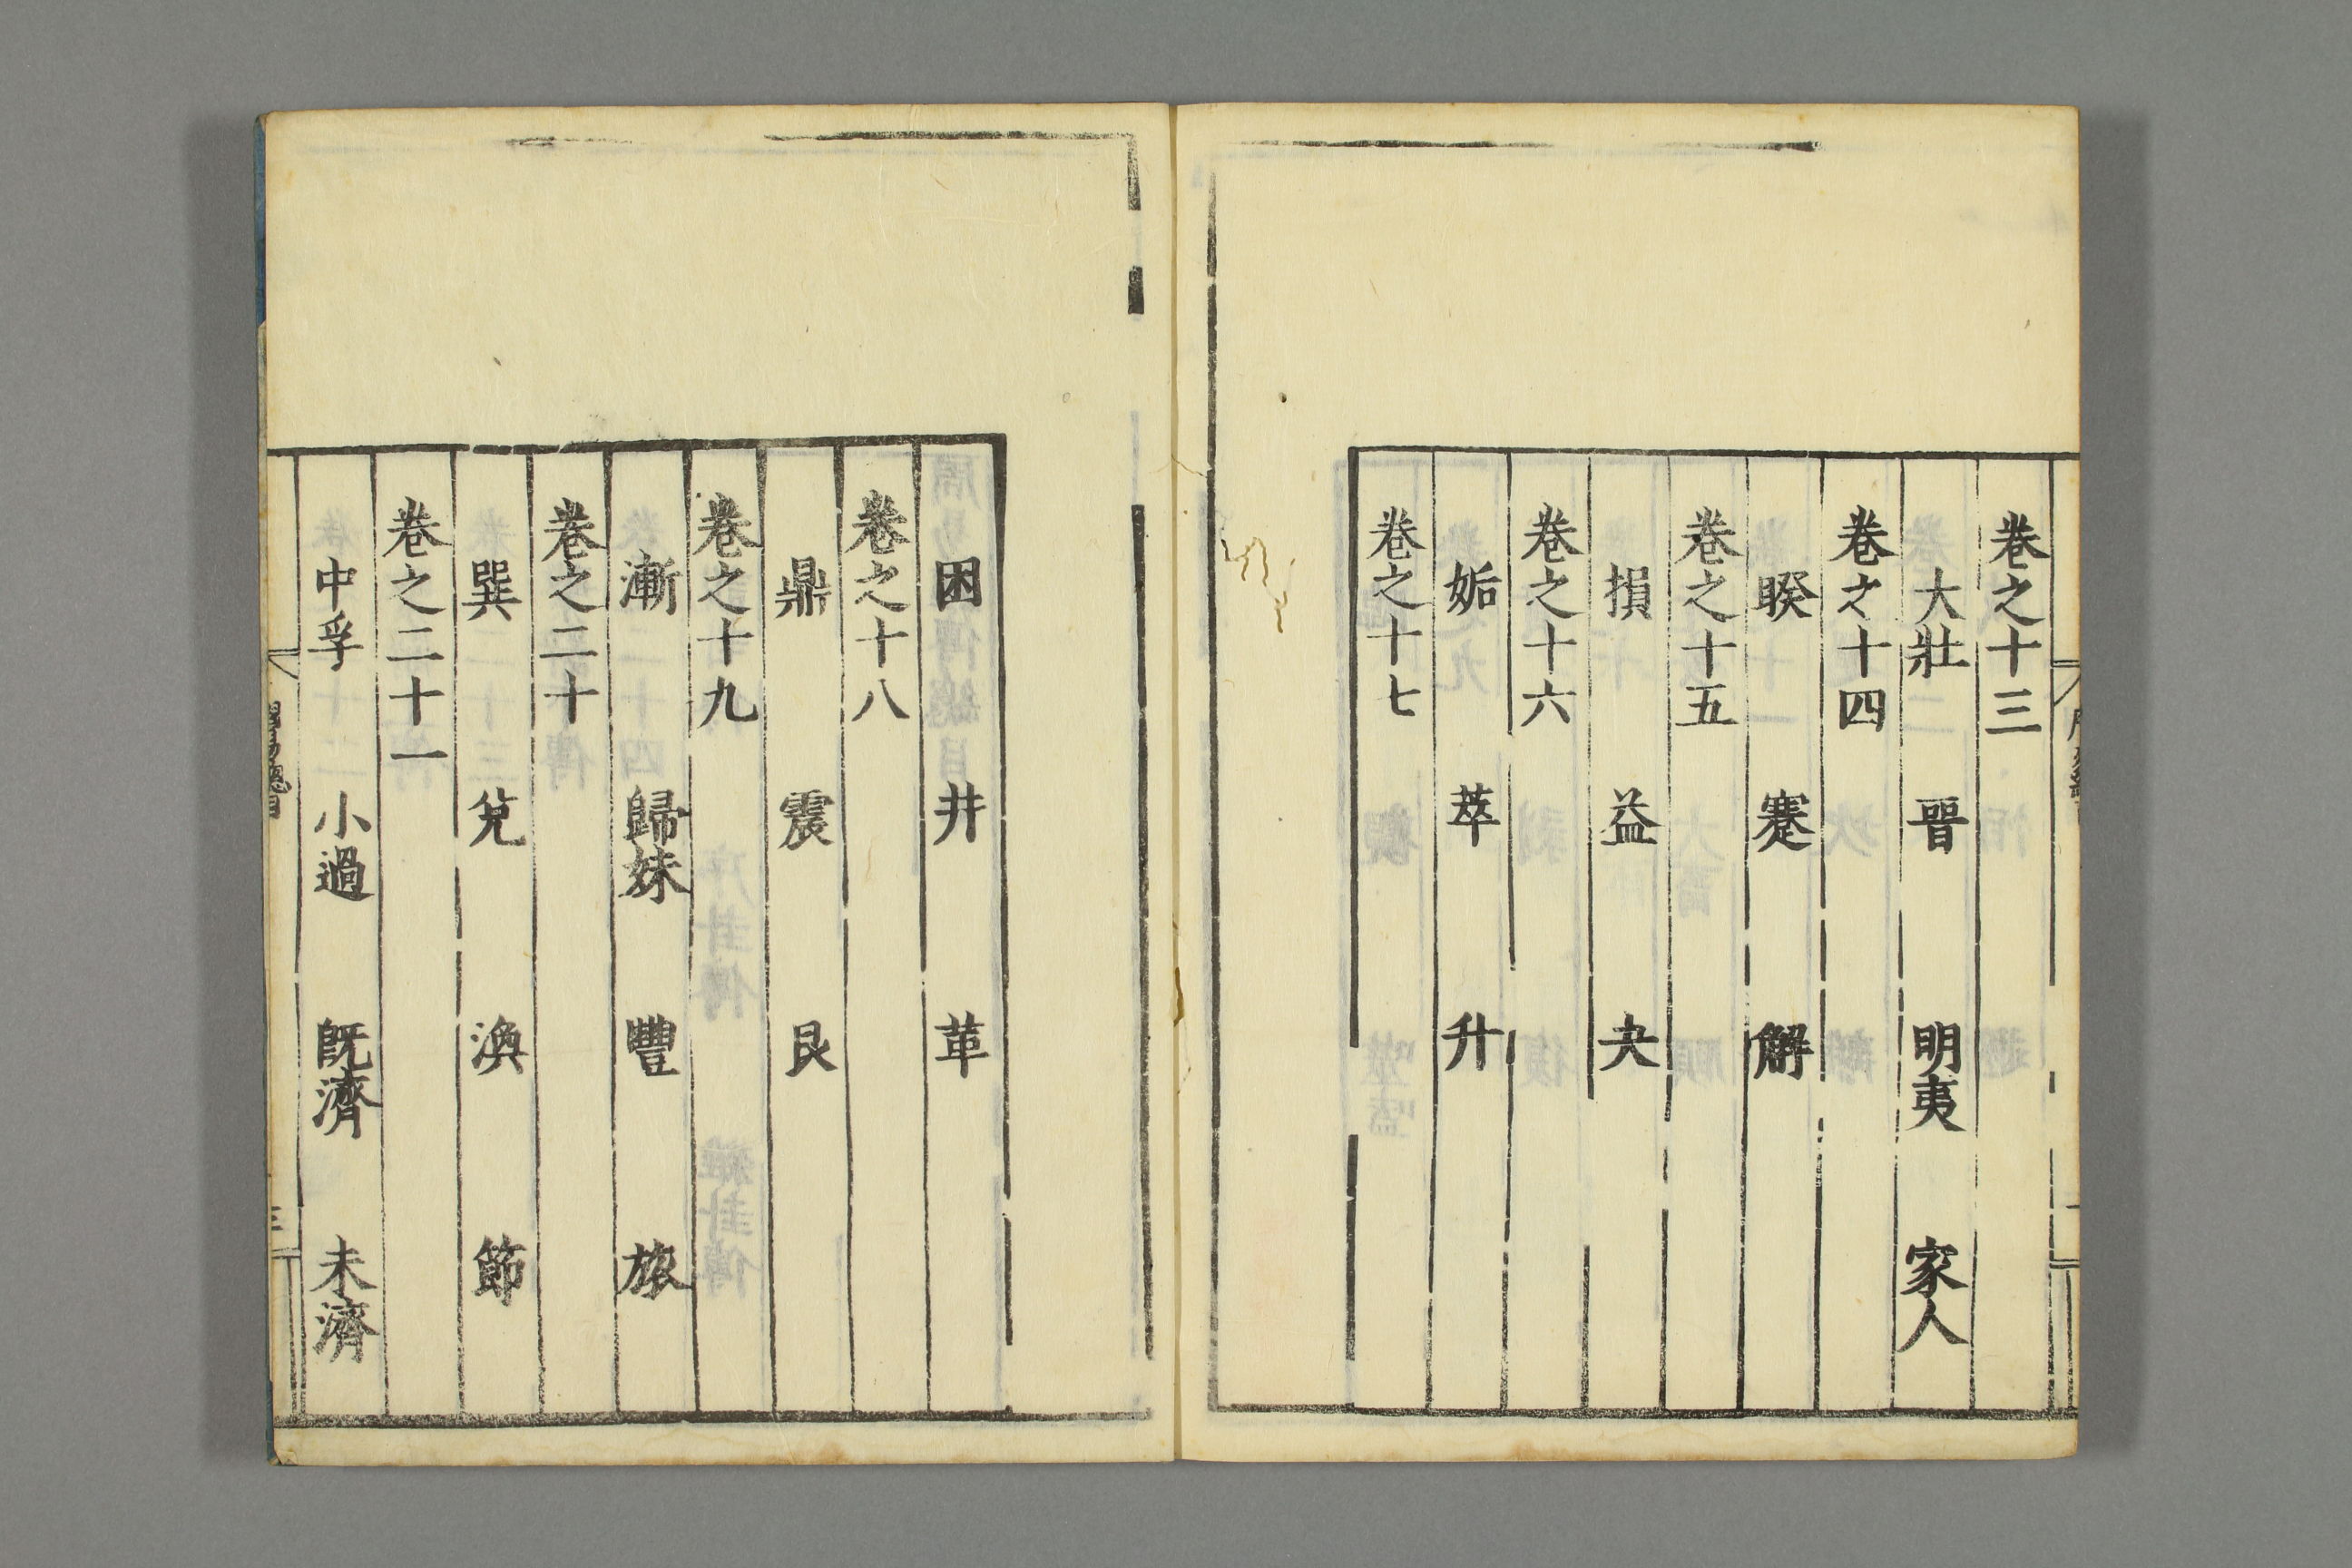 卷之十三
大壯 晋 明夷 家人
卷之十四
睽 蹇 解
卷之十五
損 益 夬
卷之十六
姤 萃 升
卷之十七
困 井 革
卷之十八
鼎 震 艮
卷之十九
漸 歸妹 豐 旅
卷之二十
巽 兌 渙 節
卷之二十一
中孚 小過 既濟 未濟
周易總目
三